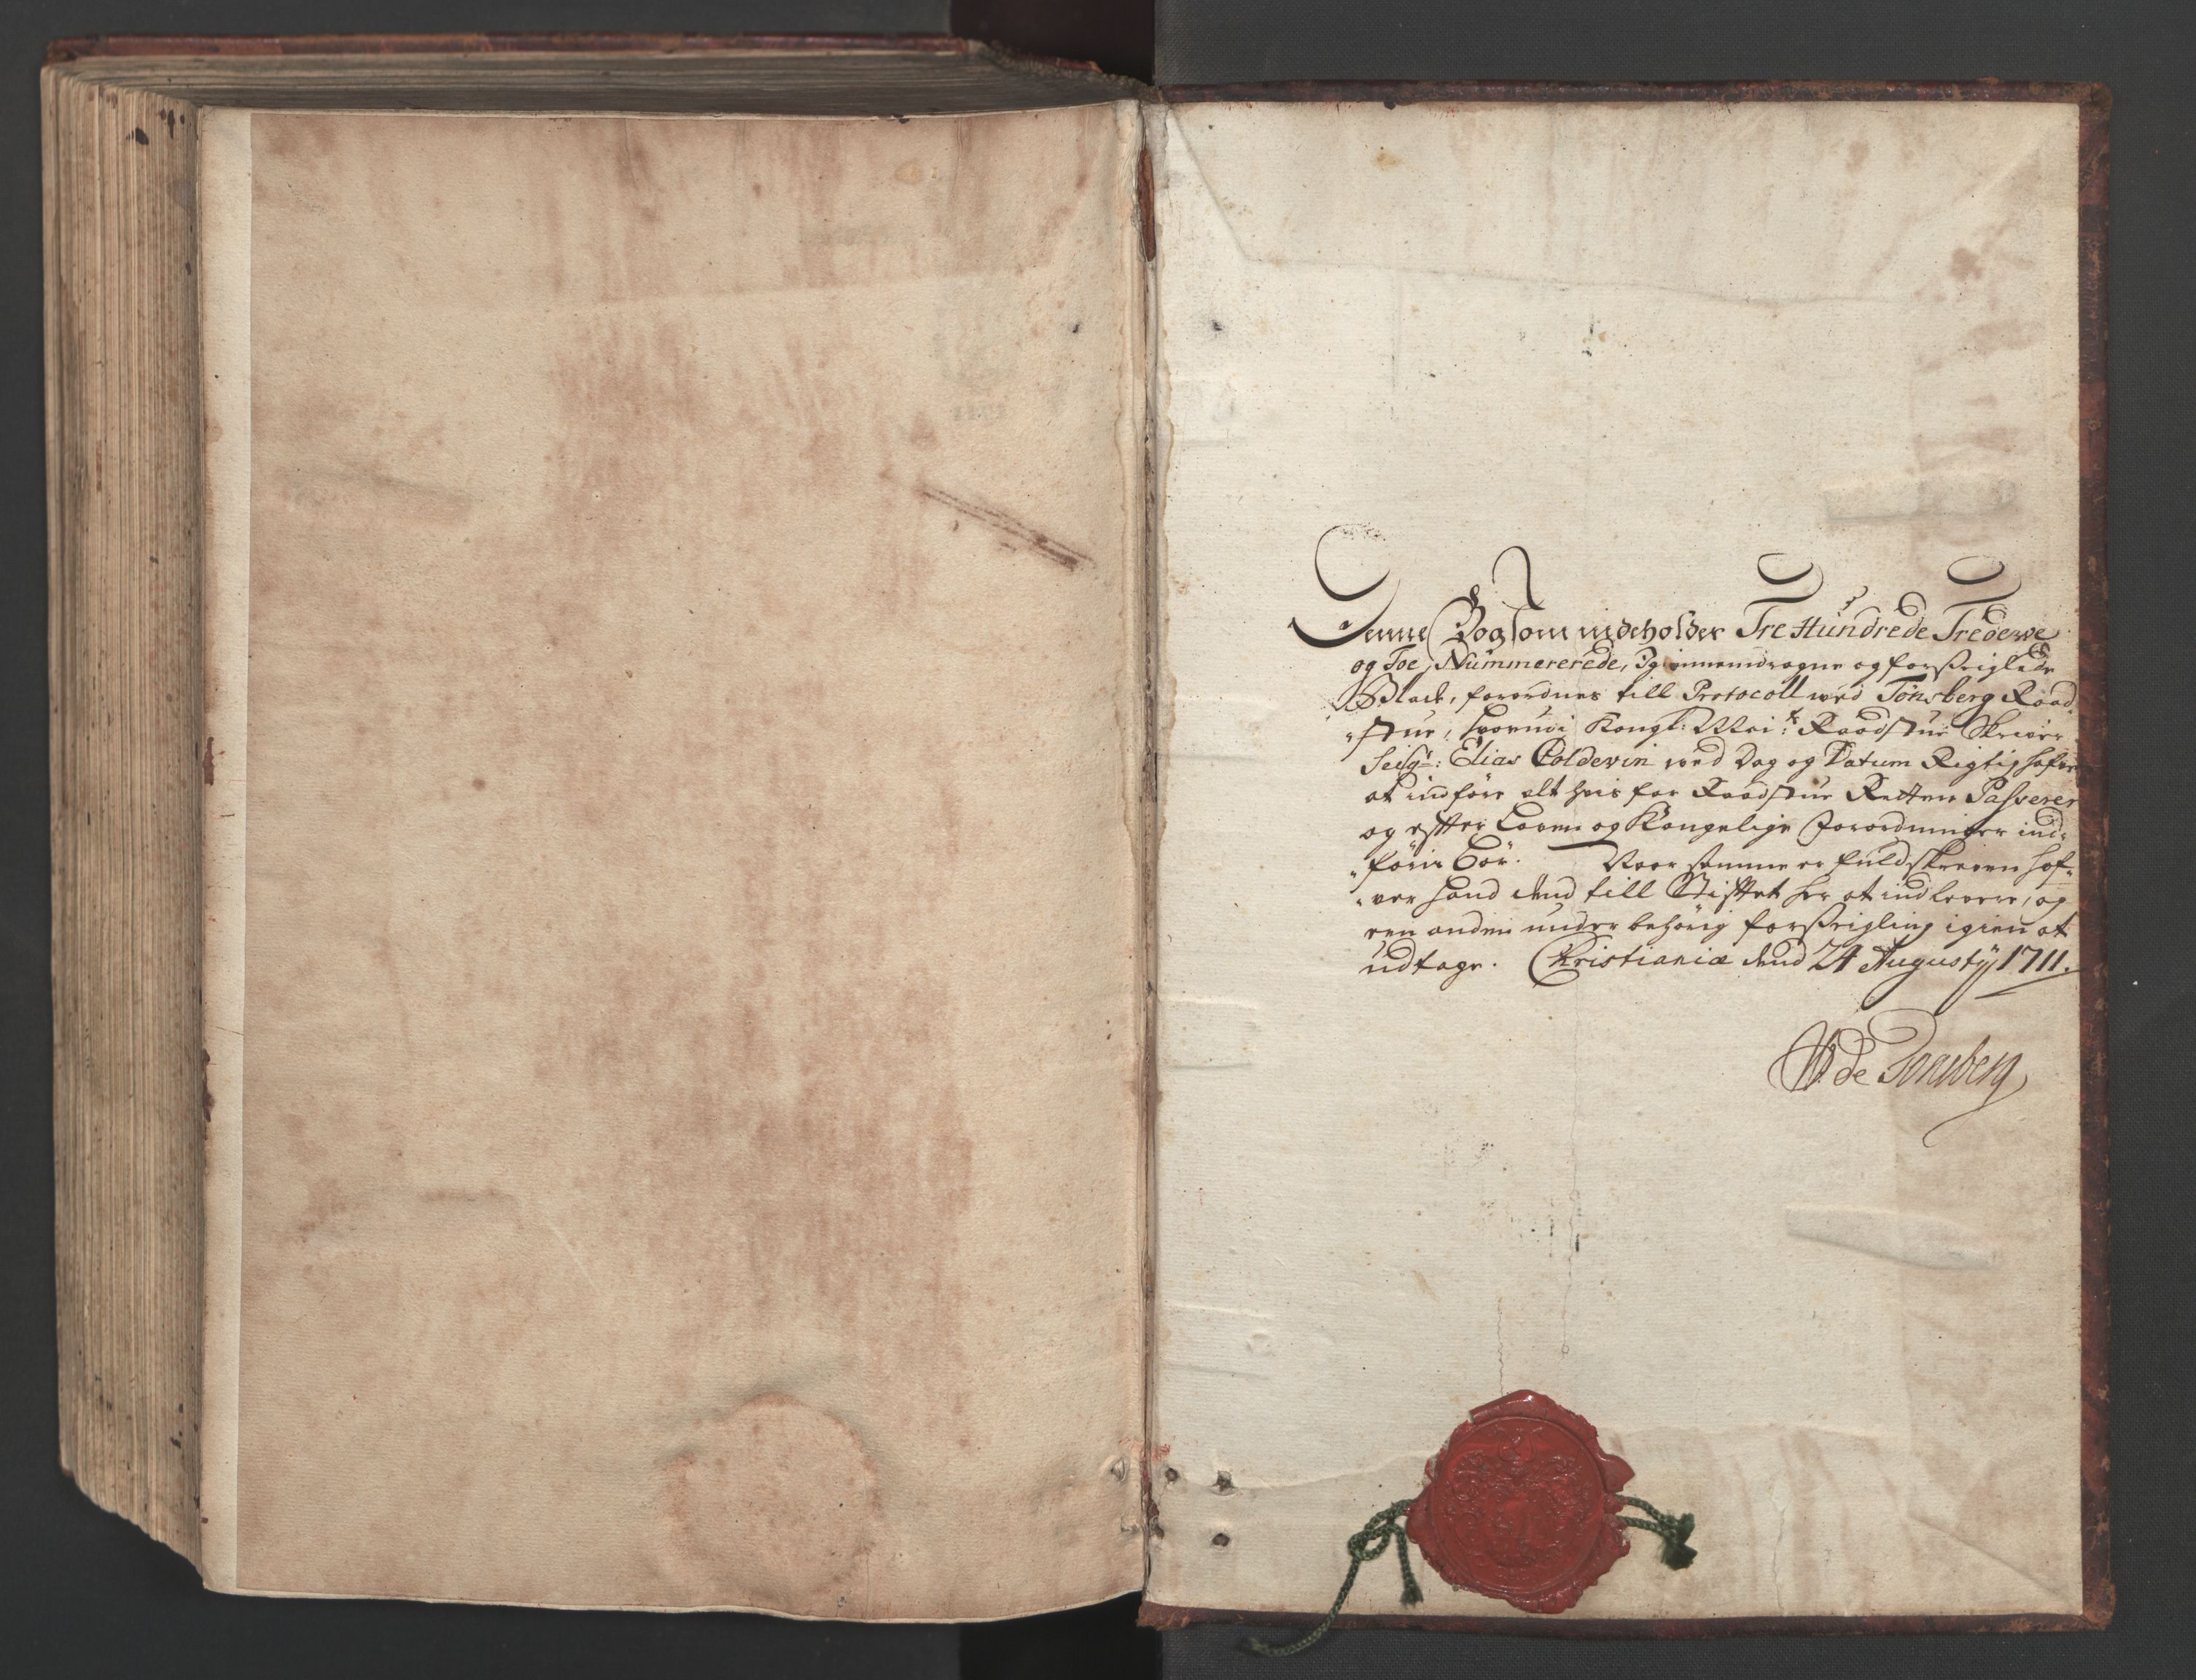 Denne Bog som indeholder Tre Hundrede Tredeve
og Toe, Nummererede, Igiennemdragne og forseiglede
Blade, forordnes till Protocoll ved Tönsberg Raad„
„stue, hvorudi Kongl: Mai:ts Raadstue Skriver
Seigr: Elias Coldevin ved Dag og Datum Rigtig hafver
at indföre alt hvis for Raadstue Retten Passerer
og efter Loven og Kongelige Forordninger ind„
„föris bör. Naar samme er fuldskreven haf„
„ver hand dend till Stiftet her at indlevere, og
een anden under behörig forseigling igien at
udtage. Christianiæ dend 24 Augustÿ 1711.
W de Tonsberg